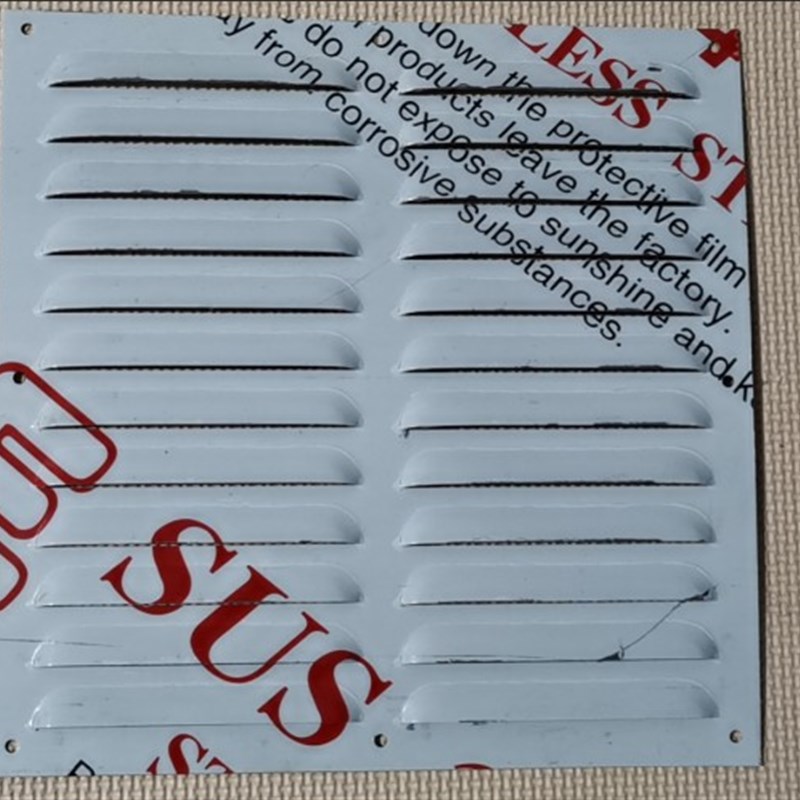 LESS ST
down the protective film
products leave the factory.
do not expose to sunshine and
from corrosive substances.
SUS
ST